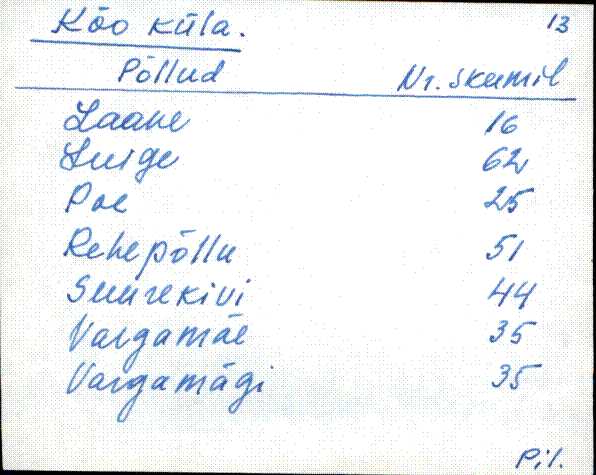 Kõo küla. 13
Põllud Nr. skeemil
Laane 16
Luige 62
Poe 25
Rehepõllu 51
Suurekivi 44
Vargamäe 35
Vargamägi 35
Pil.